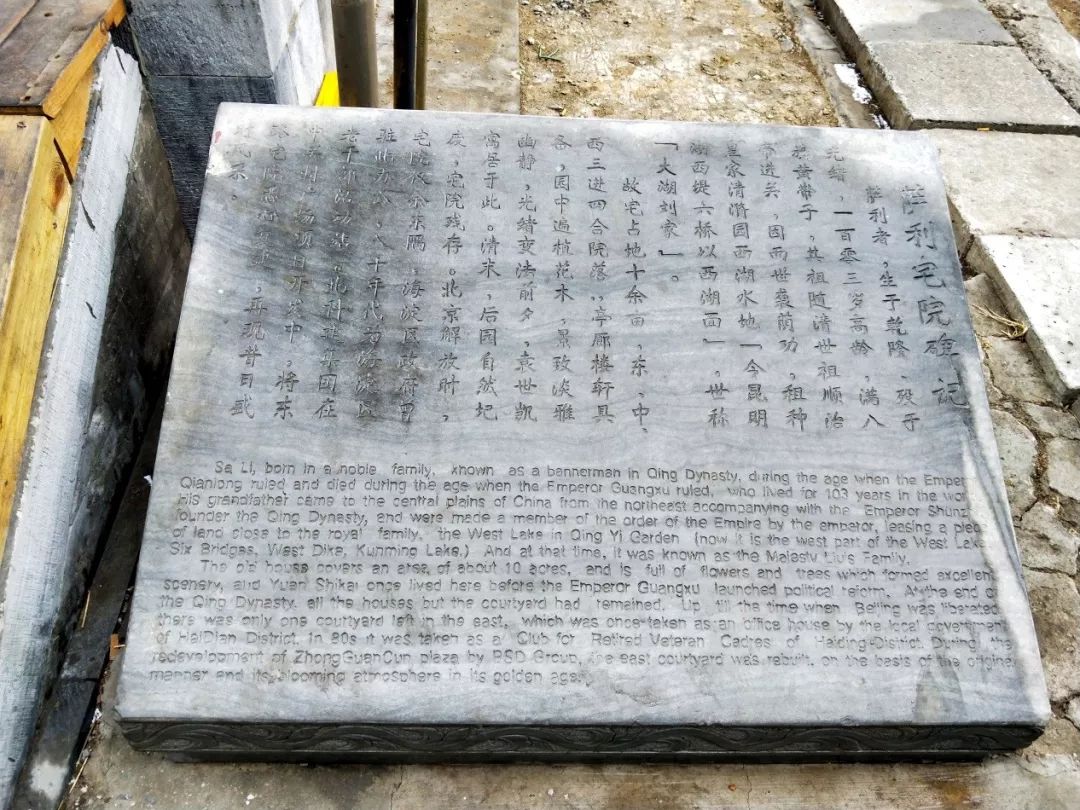 萨利宅院碑记
萨利者，生于乾隆、殁于
光绪，一百零三岁高龄，满八
旗黄带子，其祖随清世祖顺治
帝进关，因而世袭荫功，租种
皇家清漪园西湖水地「今昆明
湖西堤六桥以西湖面」，世称
「大湖刘家」。
故宅占地十余亩，东、中、
西三进四合院落，亭廊楼轩具
各，园中遍植花木，景致淡雅
幽静，光绪变法前夕，袁世凯
寓居于此。清末，后园自然圮
废，宅院残存。北京解放时，
宅院仅余东隅，海淀区政府曾
驻此办公，八十年代为海淀区
老干部活动站。北科建集团在
中关村广场项目开发中，将东
宅院 再现昔日盛
Sa Li, born in a noble family, known as a bannerman in Qing Dynasty, during the age when the Emper
Qianlong ruled and died during the age when the Emperor Guangxu ruled, who lived for 103 years in the wor
His grandfather came to the central plains of China from the northeast accompanying with the Emperor Shunz
founder the Qing Dynasty, and were made a member of the order of the Empire by the emperor, leasing a piec
of land close to the royal family, the West Lake in Qing Yi Garden (now it is the west part of the West Lake
Six Bridges, West Dike, Kunming Lake.) And at that time, it was known as the Majesty Liu's Family.
The old house covers an area of about 10 acres, and is full of flowers and trees which formed excellen
scenery, and Yuan Shikai once lived here before the Emperor Guangxu launched political reform. At the end of
the Qing Dynasty, all the houses but the courtyard had remained. Up till the time when Beijing was liberated,
there was only one courtyard left in the east, which was once taken as an office house by the local government
of HaiDian District. In 80s it was taken as a Club for Retired Veteran Cadres of Haiding District. During the
redevelopment of ZhongGuanCun plaza by BSD Group, the east courtyard was rebuilt, on the basis of the original
manner and its blooming atmosphere in its golden age.